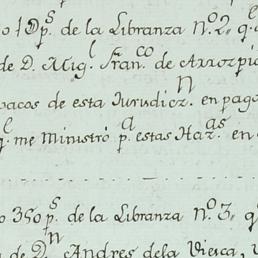 o 10 p.s de la Libranza N.o 2, q.e
de D. Mig.l Fran.co de Arrozpi
bacos de esta Jurudicz.n en pag
q.e me Ministró p.a estas Haz.as en
o 350 p.s de la Libranza N.o 3, q.e
n de D.n Andres de la Vieca, v